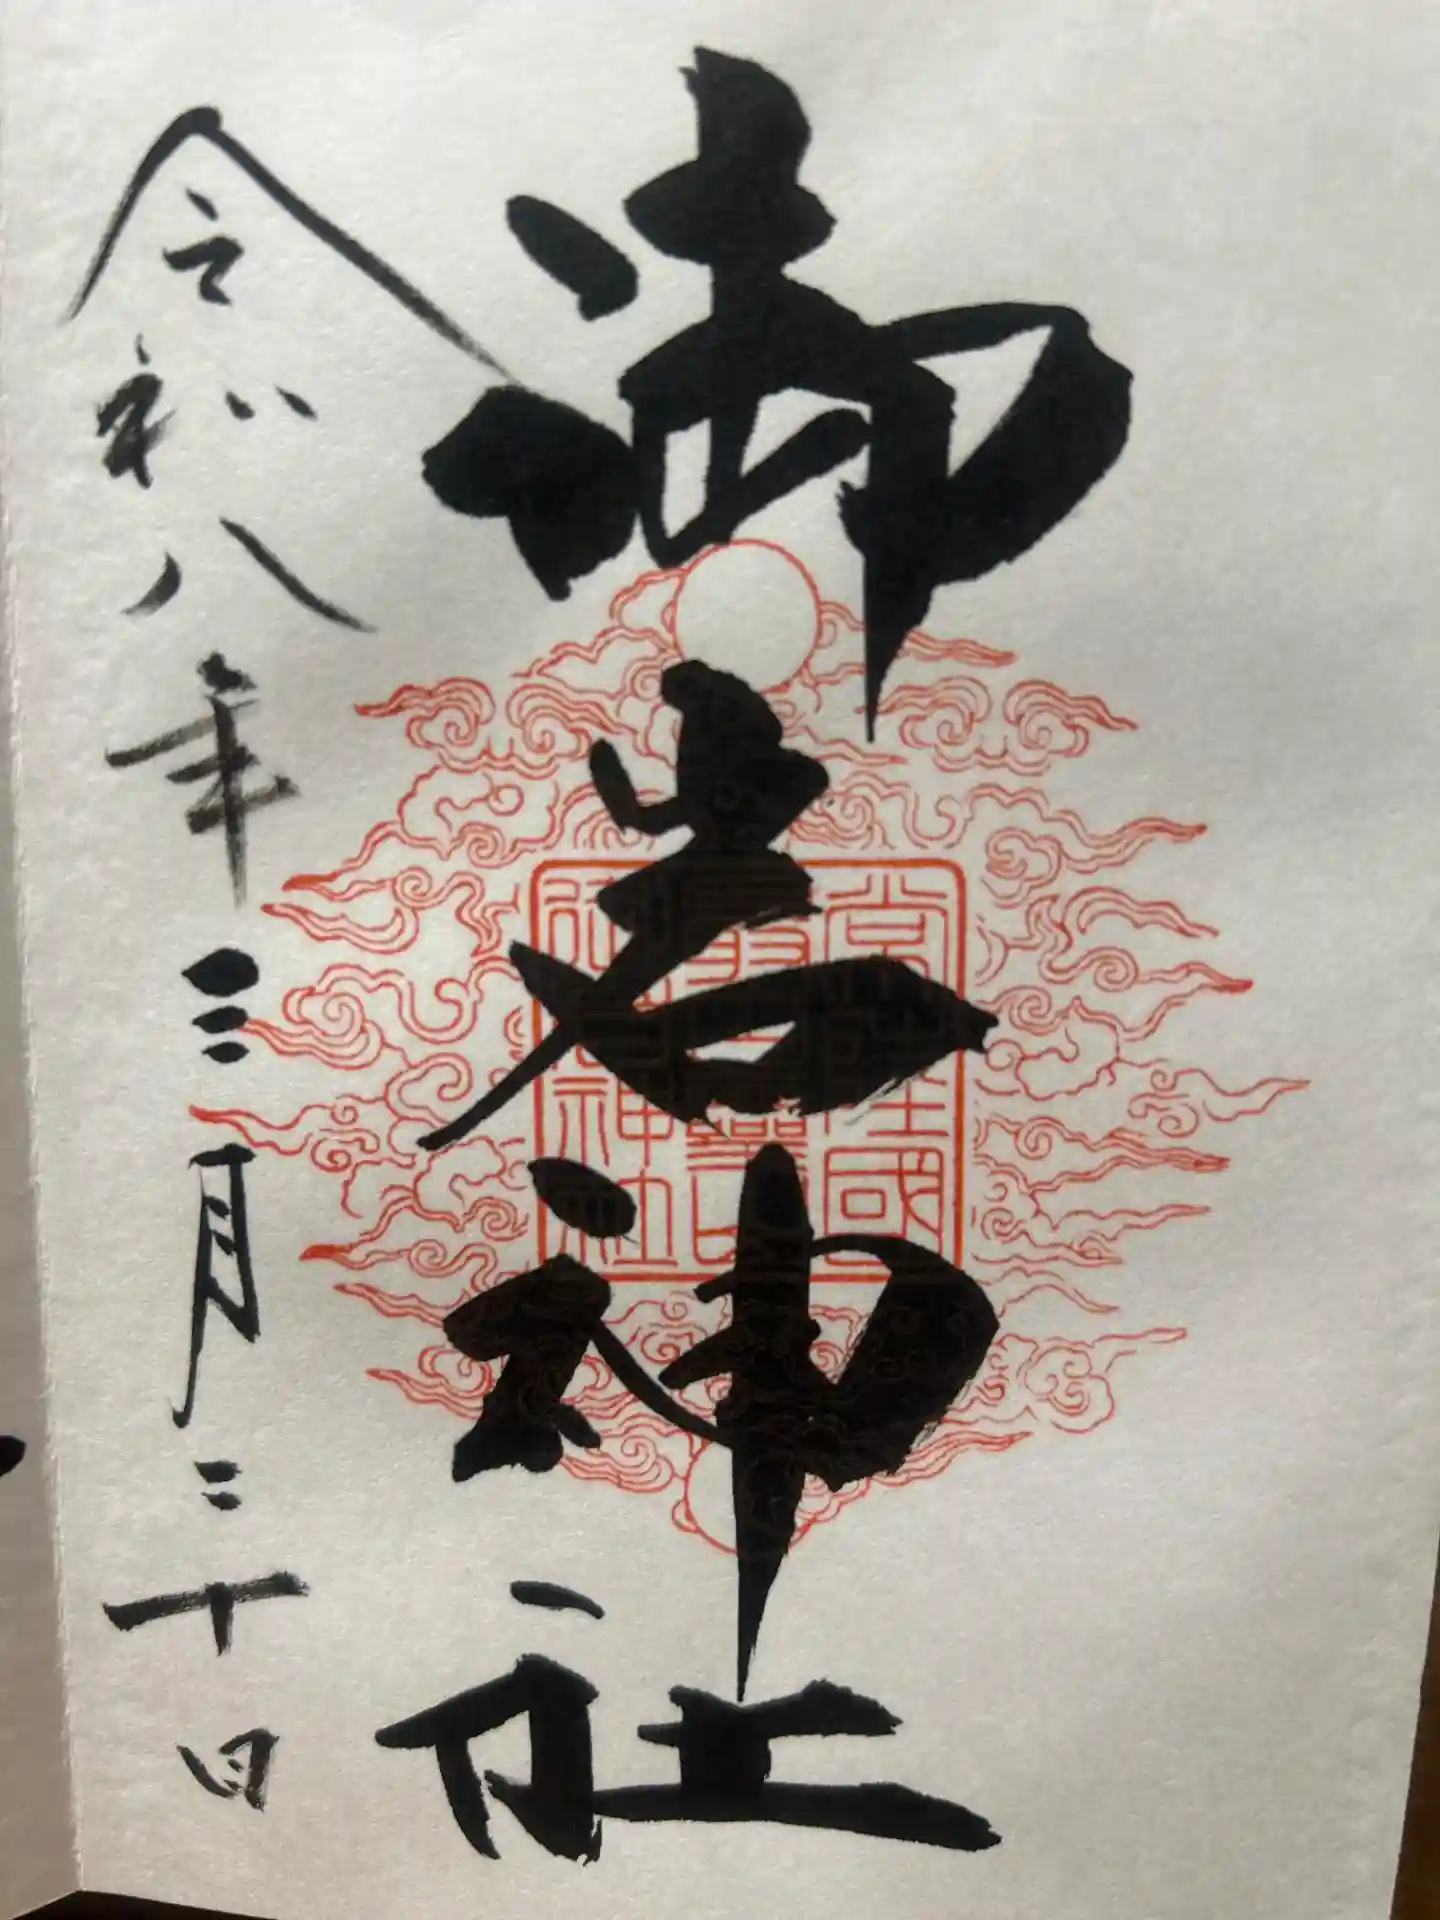 御岩神社
常陸國
御岩神社
令和八年三月二十日